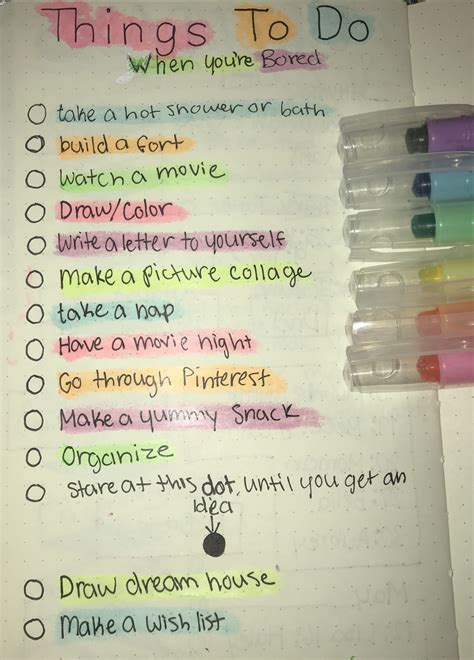 Things To Do
When you're Bored
take a hot shower or bath
build a fort
watch a movie
Draw/Color
Write a letter to yourself
Make a picture collage
take a nap
Have a movie night
Go through Pinterest
Make a yummy snack
Organize
Stare at this dot, until you get an
idea
Draw dream house
Make a wish list